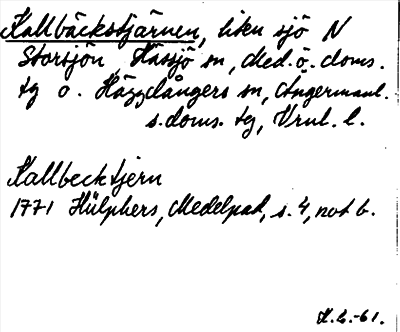 Kallbäckstjärnen, liten sjö N
Storsjön Hässjö sn, Med. ö. doms.
tg o. Häggdångers sn, Ångermanl.
s. doms. tg, Vrnl. l.
Kallbecktjern
1771 Hülphers, Medelpad, s. 4, not b.
K.L.-61.